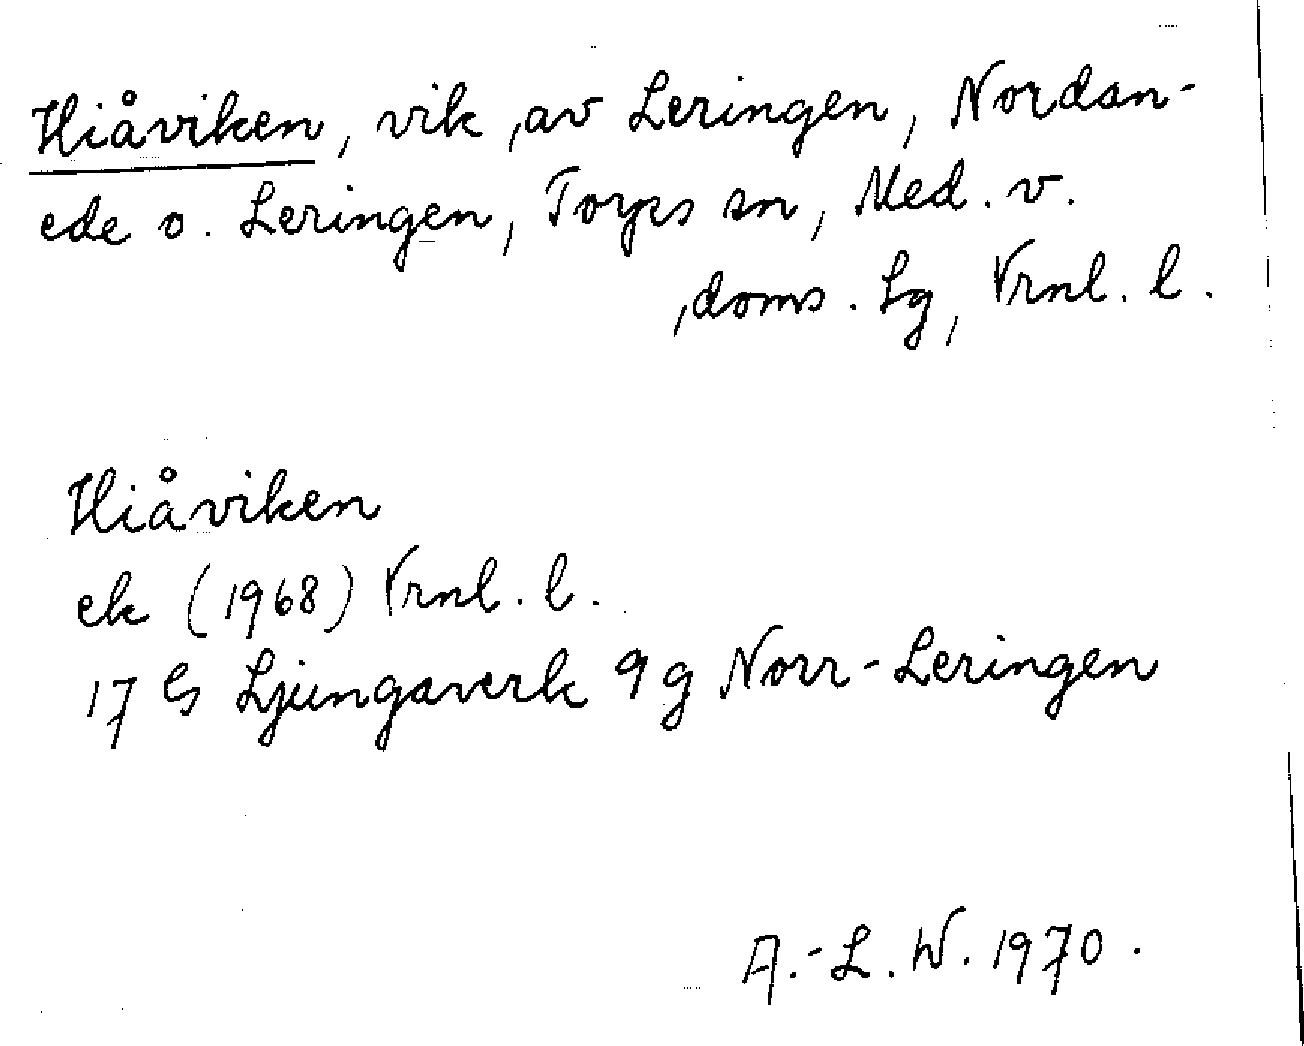 Hiåviken, vik av Leringen, Nordan-
ede o. Leringen, Torps sn, Med. v.
doms. Lg, Vrnl. l.
Hiåviken
ek (1968) Vrnl. l.
17 G Ljungaverk 9 g Norr-Leringen
A.-L. W. 1970.